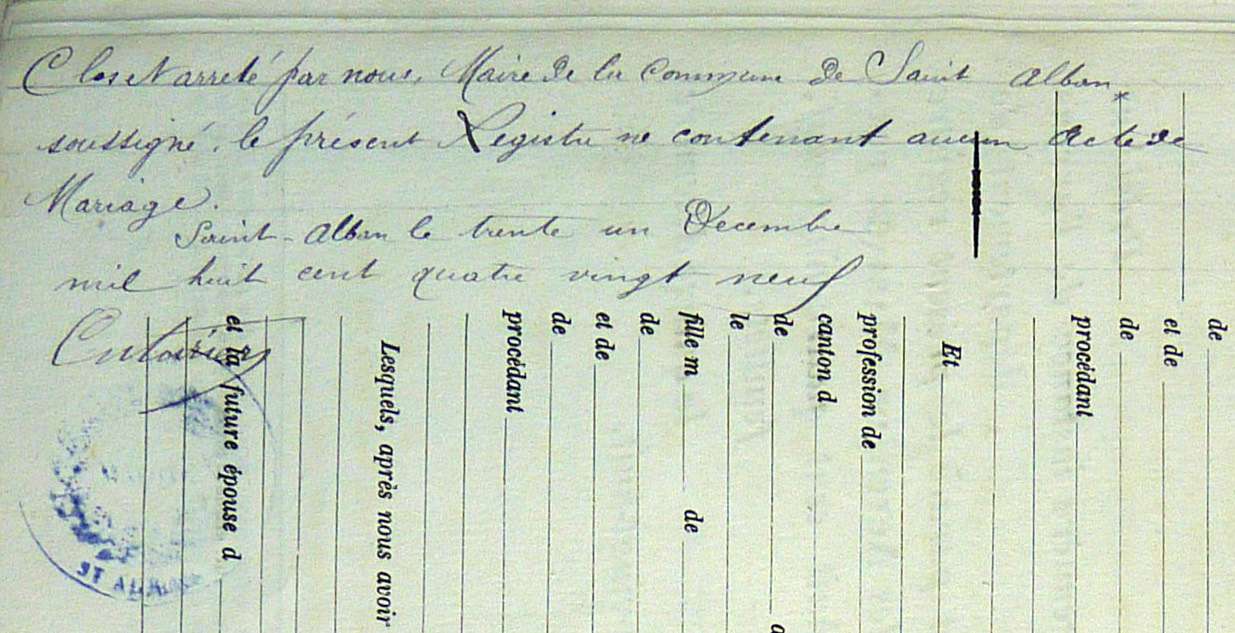 Clos et arreté par nous, Maire de la Commune de Saint Alban
soussigné, le présent Registre ne contenant aucun Acte de
Mariage.
Saint-Alban le trente un Décembre
mil huit cent quatre vingt neuf
ST ALBAN
et la future épouse d
Lesquels, après nous avoir
procédant
de
et de
de
fille m de
le
de
canton d
profession de
Et
procédant
de
et de
de